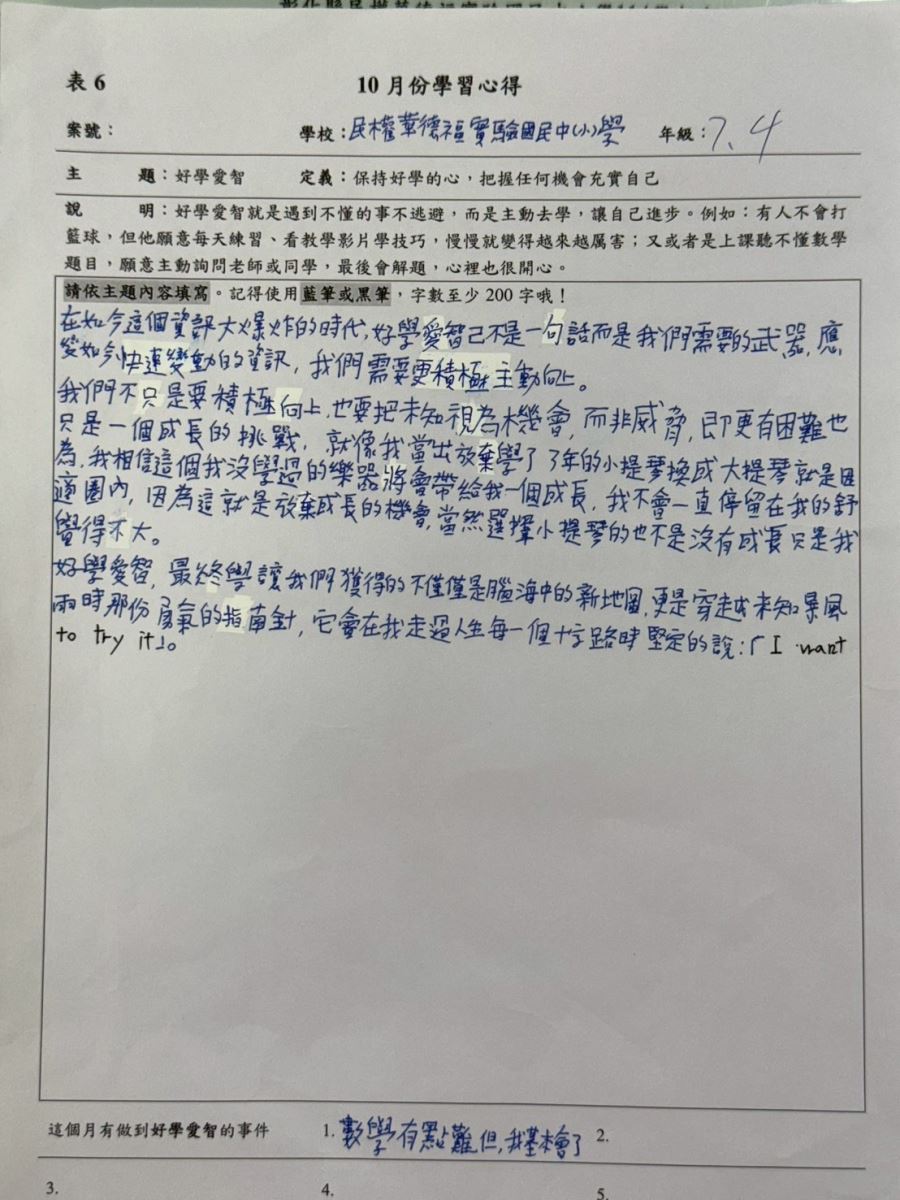 表 6
10 月份學習心得
案號：
學校：民權華德福實驗國民中(小)學
年級：7、4
主 題：好學愛智 定義：保持好學的心，把握任何機會充實自己
說 明：好學愛智就是遇到不懂的事不逃避，而是主動去學，讓自己進步。例如：有人不會打
籃球，但他願意每天練習、看教學影片學技巧，慢慢就變得越來越厲害；又或者是上課聽不懂數學
題目，願意主動詢問老師或同學，最後會解題，心裡也很開心。
請依主題內容填寫。記得使用藍筆或黑筆，字數至少 200 字哦！
在如今這個資訊大爆炸的時代，好學愛智己不是一句話而是我們需要的武器，應
變如今快速變動的資訊，我們需要更積極主動向上。
我們不只是要積極向上，也要把未知視為機會，而非威脅，即更有困難也
只是一個成長的挑戰，就像我當出放棄學了3年的小提琴換成大提琴就是因
為，我相信這個我沒學過的樂器將會帶給我一個成長，我不會一直停留在我的舒
適圈內，因為這就是放棄成長的機會，當然選擇小提琴的也不是沒有成長只是我
覺得不大。
好學愛智，最終學讓我們獲得的不僅僅是腦海中的新地圖，更是穿越未知暴風
雨時那份勇氣的指南針，它會在我走過人生每一個十字路時堅定的說：「I want
to try it」。
這個月有做到好學愛智的事件
1. 數學有點難但，我基本會了
2.
3.
4.
5.